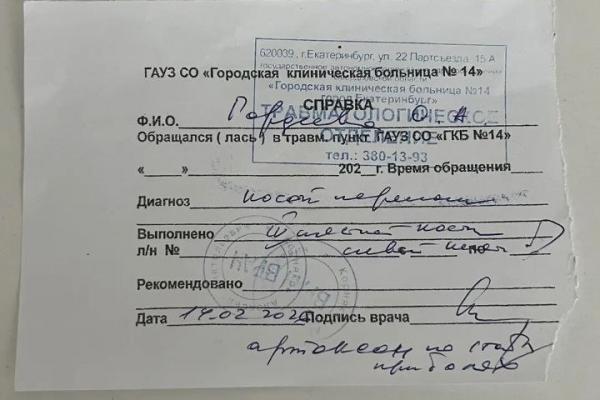 620039, г.Екатеринбург, ул. 22 Партсъезда, 15 А
«Городская клиническая больница №14
город Екатеринбург»
ТРАВМАТОЛОГИЧЕСКОЕ
ОТДЕЛЕНИЕ
тел.: 380-13-93
ГАУЗ СО «Городская клиническая больница № 14»
СПРАВКА
Ф.И.О.
Обращался ( лась ) в травм. пункт ГАУЗ СО «ГКБ №14»
« » 202 г. Время обращения
Диагноз косой перелом
Выполнено кости
л/н № левой по
Рекомендовано
Дата 14.02 Подпись врача
артоксан по
при болях